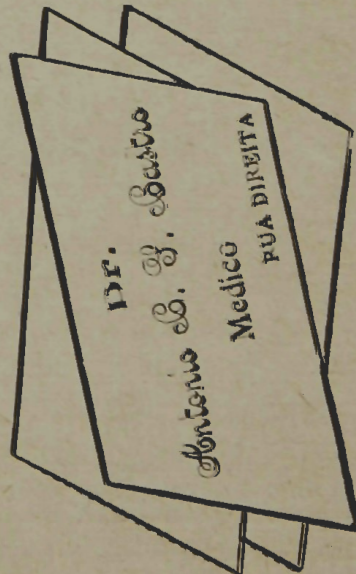 Dr.
Antonio C. G. Castro
Medico
RUA DIREITA